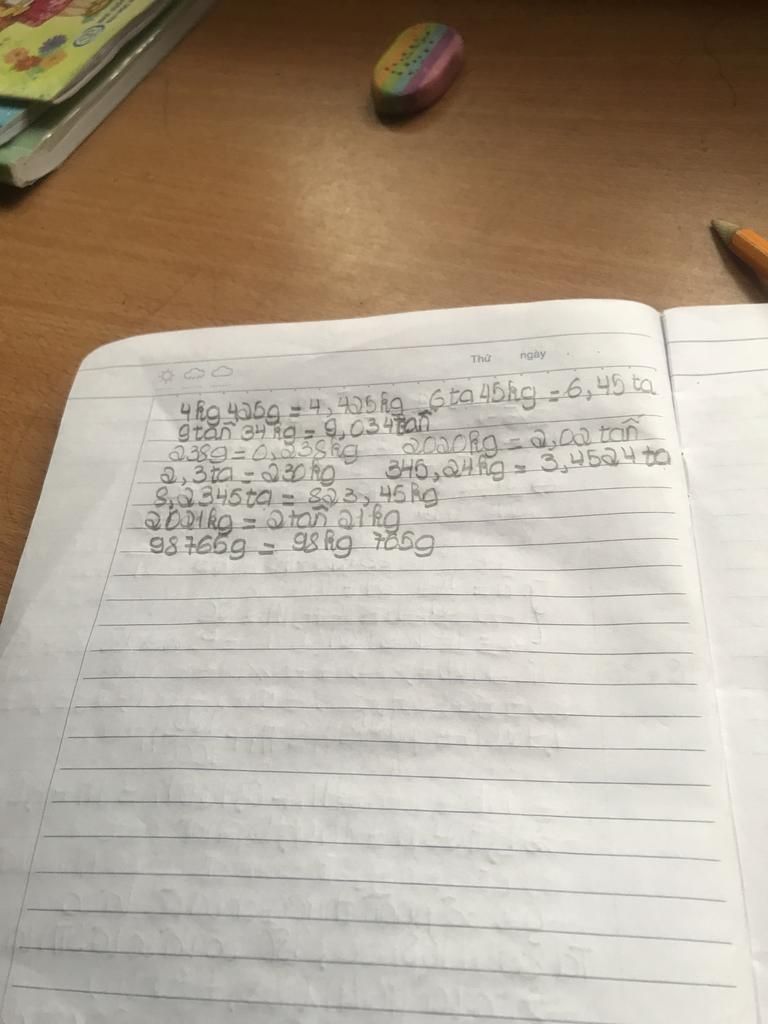 Thứ ngày
4kg 425g = 4,425kg 6ta 45kg = 6,45 ta
9tấn 34kg = 9,034tấn
238g = 0,238kg 2020kg = 2,02 tấn
2,3ta = 230kg 345,24kg = 3,4524 ta
8,2345ta = 823,45kg
2021kg = 2tấn 21kg
98765g = 98kg 765g